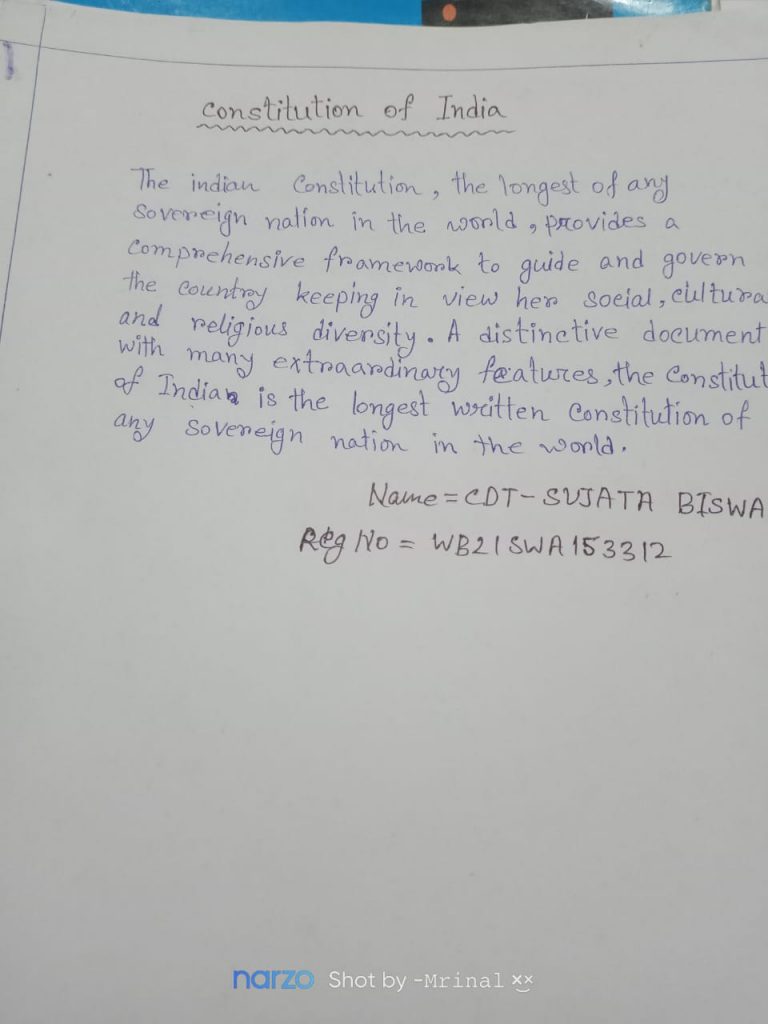 constitution of India
The indian Constitution, the longest of any
Sovereign nation in the world, provides a
Comprehensive framework to guide and govern
the country keeping in view her social, cultura
and religious diversity. A distinctive document
with many extraardinary features, the Constitut
of Indian is the longest written Constitution of
any Sovereign nation in the world.
Name = CDT- SUJATA BISWA
Reg No = WB21SWA153312
narzo Shot by -Mrinal ××